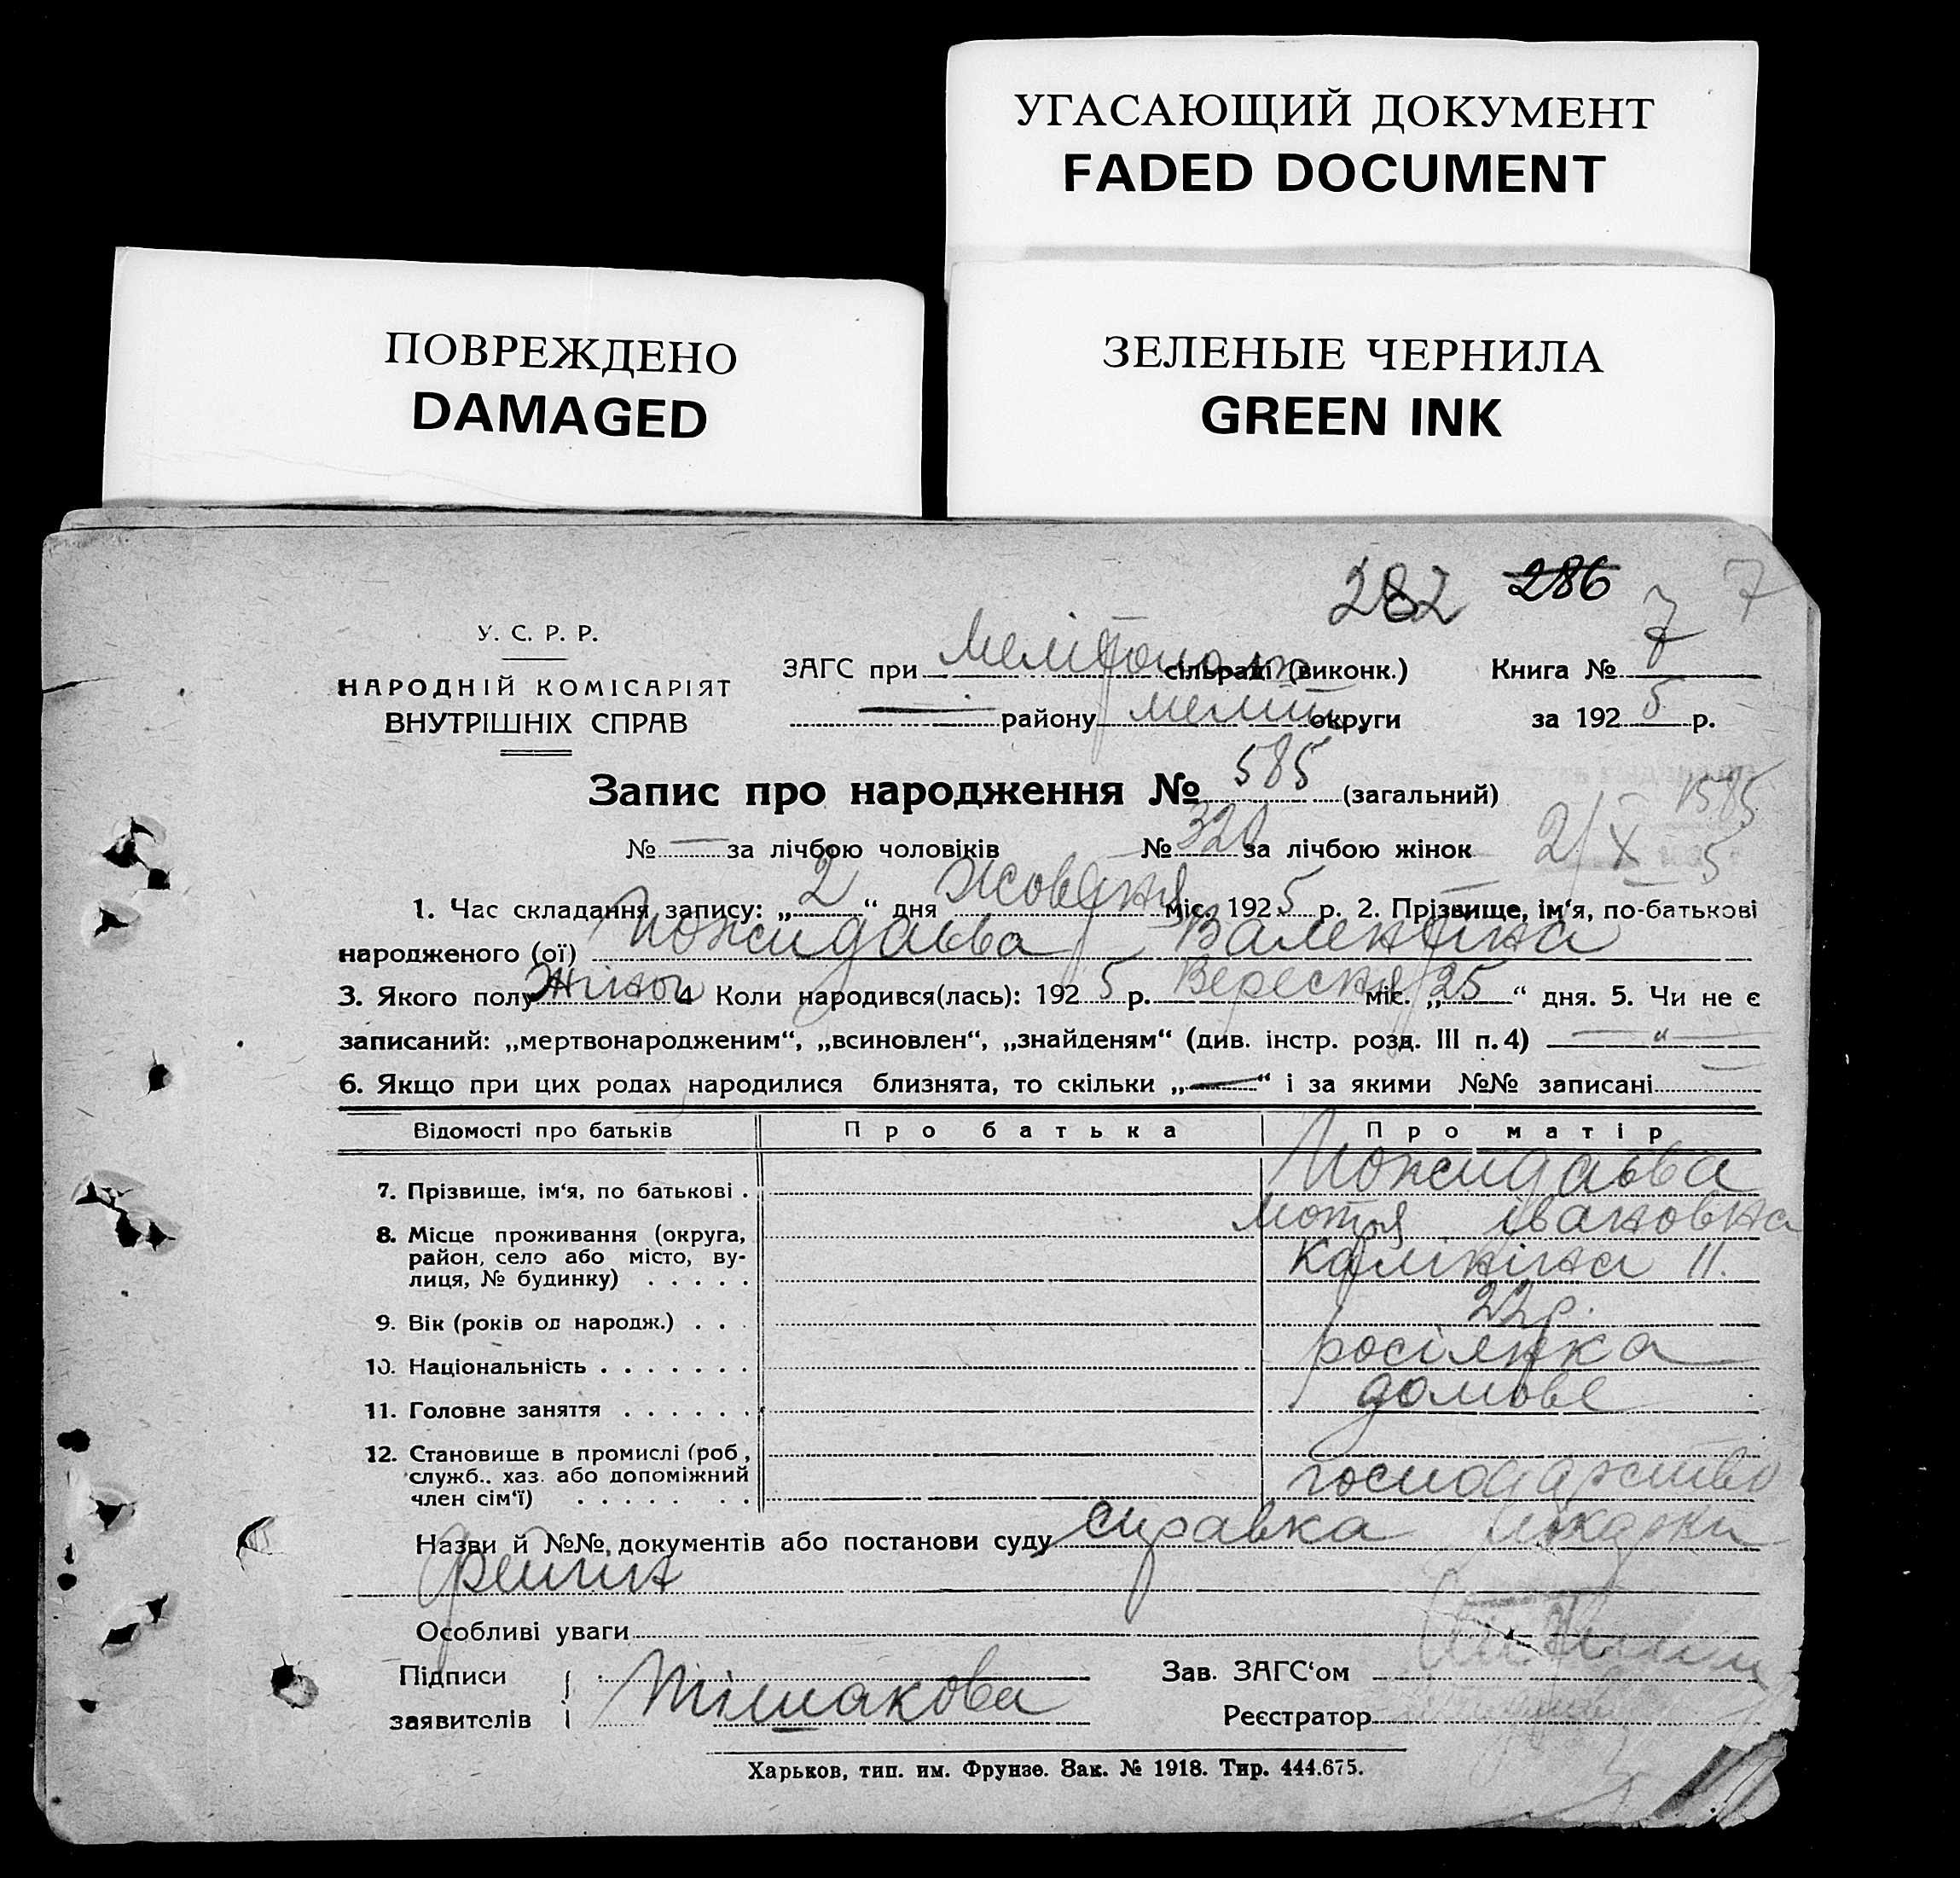 УГАСАЮЩИЙ ДОКУМЕНТ
FADED DOCUMENT
ПОВРЕЖДЕНО
DAMAGED
ЗЕЛЕНЫЕ ЧЕРНИЛА
GREEN INK
282 286 7 7
У. С. Р. Р.
НАРОДНІЙ КОМІСАРІЯТ
ВНУТРІШНІХ СПРАВ
ЗАГС при сільраді (виконк.) Книга № 7
— району мелит. округи за 1925 р.
Запис про народження № 585 (загальний) 1585
№ — за лічбою чоловіків № 320 за лічбою жінок 2/X 5
1. Час складання запису: „2“ дня Жовтня міс. 1925 р. 2. Прізвище, ім‘я, по-батькові
народженого (ої) Валентіна
3. Якого полу жіноч 4 Коли народився(лась): 1925 р. Вересня міс. „25“ дня. 5. Чи не є
записаний: „мертвонародженим“, „всиновлен“, „знайденям“ (див. інстр. розд. III п. 4) — „ —
6. Якщо при цих родах народилися близнята, то скільки „—“ і за якими №№ записані —
Відомості про батьків Про батька Про матір
7. Прізвище, ім‘я, по батькові .
мотря івановна
8. Місце проживання (округа,
район, село або місто, ву-
лиця, № будинку) . . . . . калініна 11.
9. Вік (років од народж.) . . . 22 р.
10. Національність . . . . . . . росіянка
11. Головне заняття . . . . . . домове
12. Становище в промислі (роб.,
служб., хаз. або допоміжний
член сім‘ї) . . . . . . . господарство
Назви й №№ документів або постанови суду справка
Особливі уваги
Підписи
заявителів
Зав. ЗАГС‘ом
Реєстратор
Харьков, тип. им. Фрунзе. Зак. № 1918. Тир. 444.675.